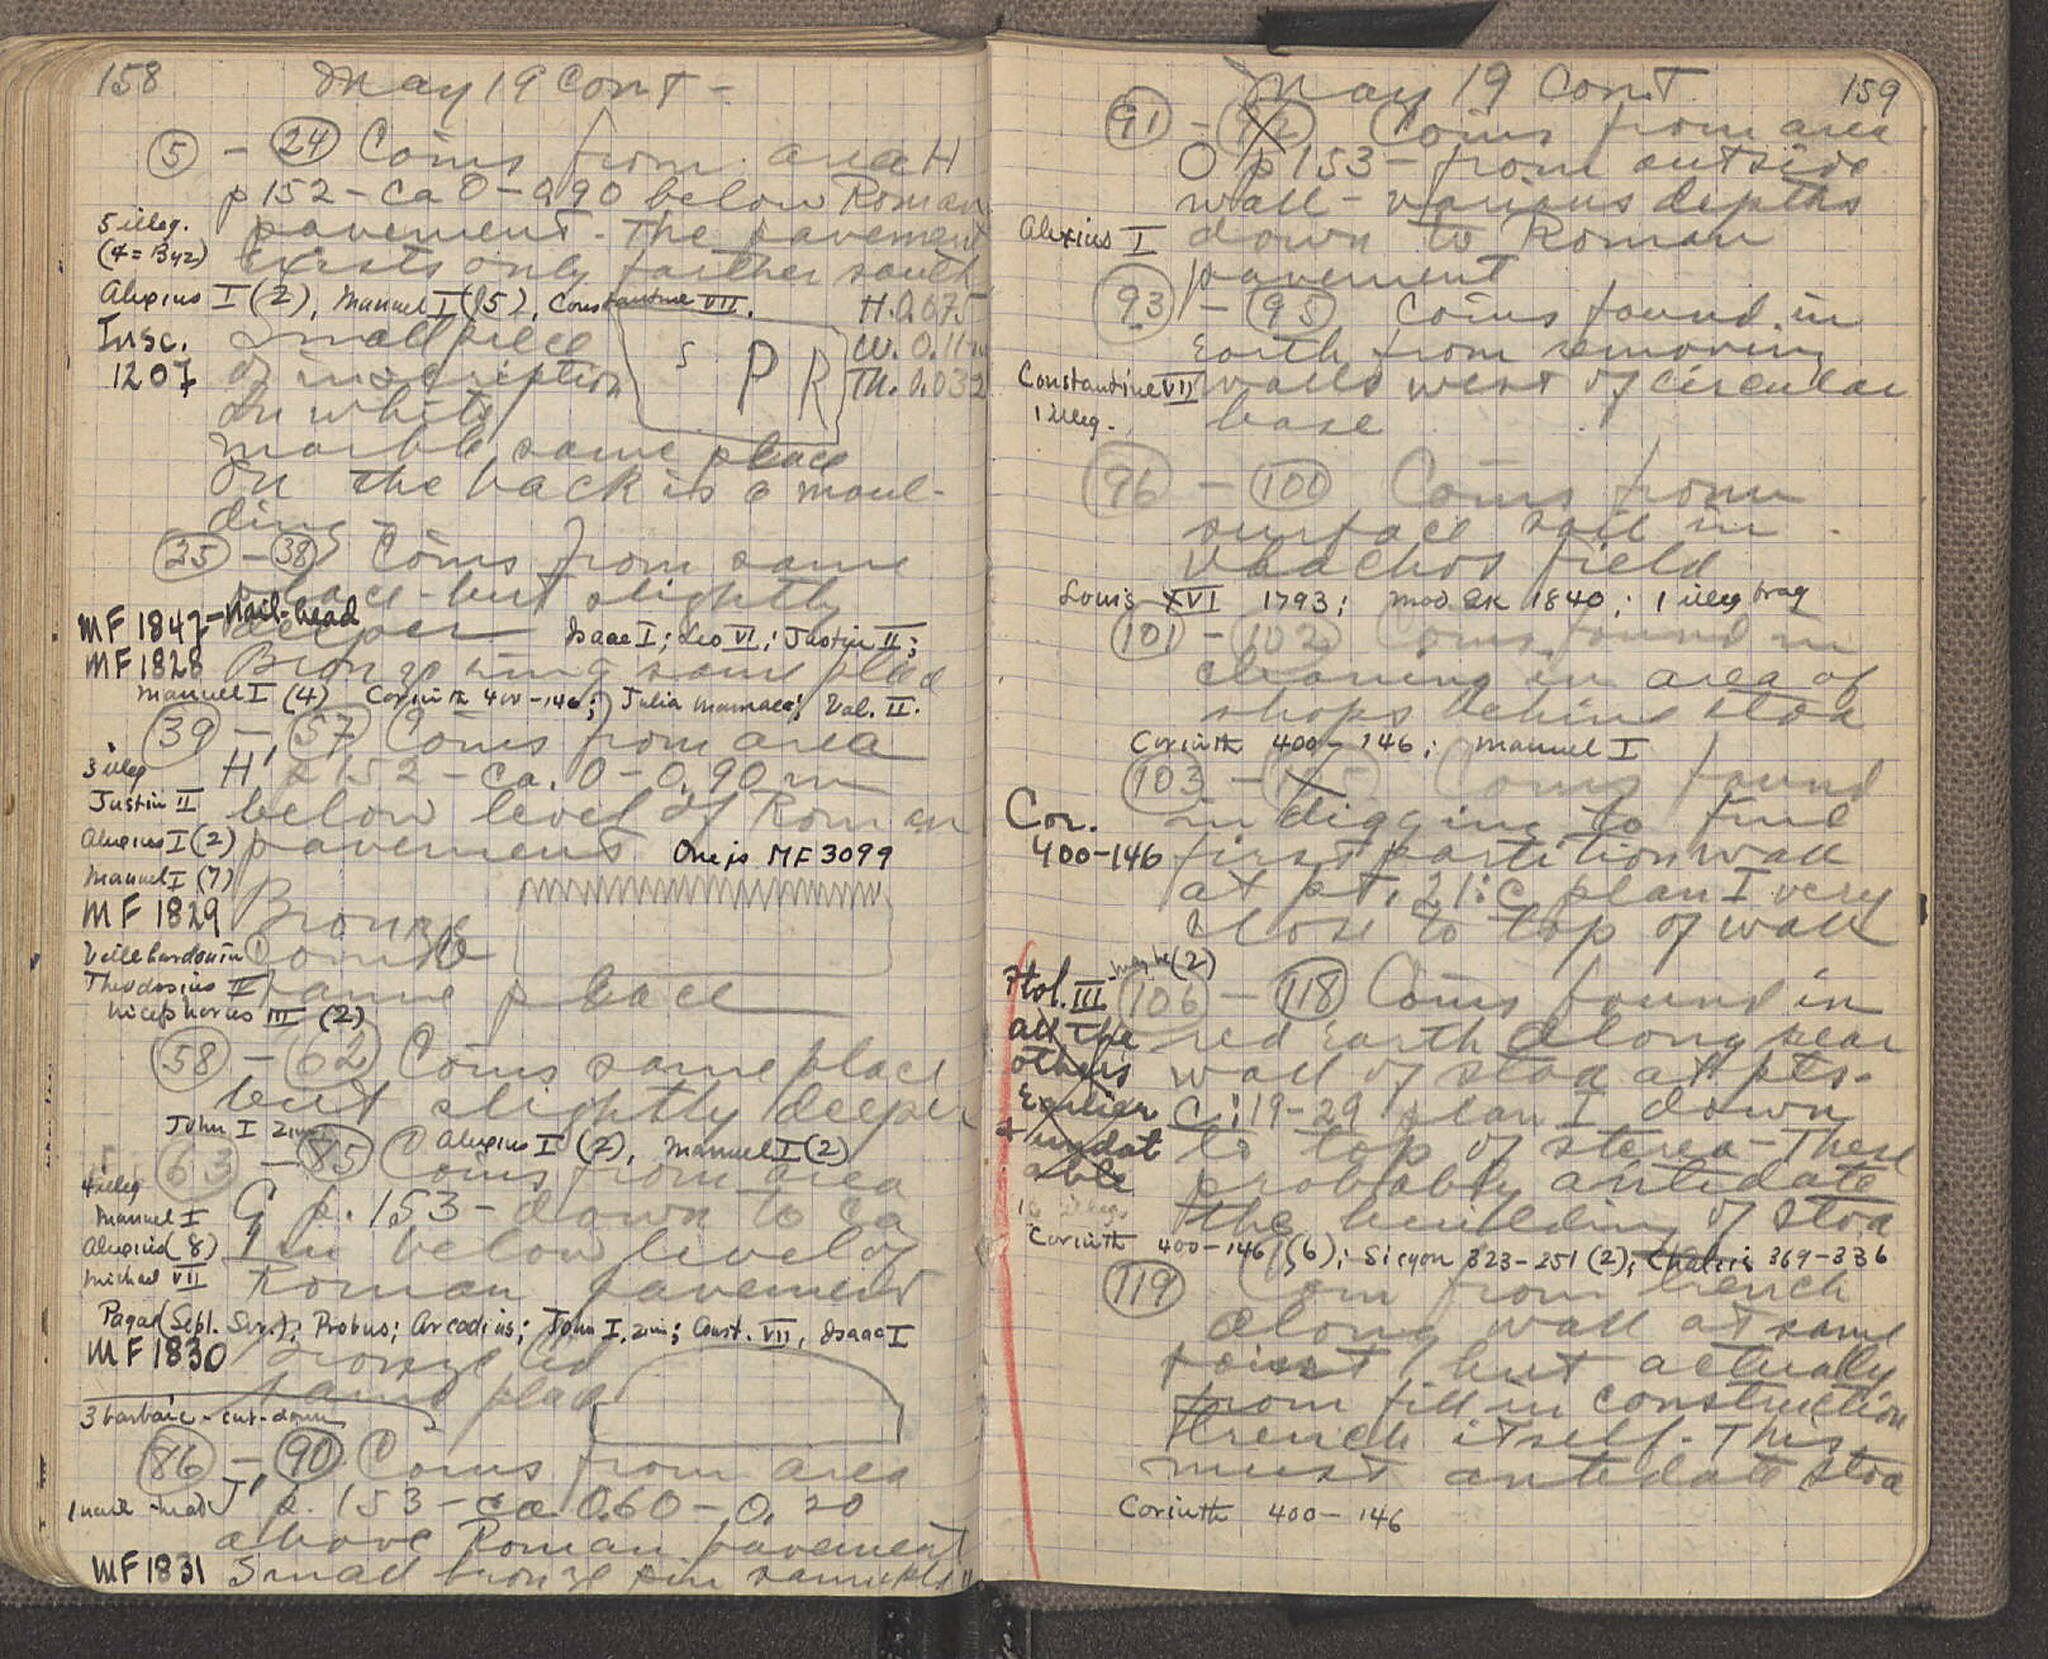 158
May 19 Cont -
5 - 24 Coins from area H
p 152 - ca 0 - 0.90 below Roman
5 illeg.
pavement - The pavement
(4 = Byz)
exists only farther south
Alexius I (2), Manuel I (15), Constantine VII.
H. 0.075
Insc.
1207
Small piece
of inscription
in white
marble same place
S P R
W. 0.11
Th. 0.032
On the back is a moul-
ding -
25 - 38 Coins from same
place - but slightly
MF 1847 - Nail-head
deeper
Isaac I; Leo VI; Justin II;
MF 1828 Bronze ring same place
Manuel I (4) Corinth 400-146; Julia Mamaea; Val. II.
39 - 57 Coins from area
3 illeg
H' p 152 - ca. 0 - 0.90 m
Justin II
below level of Roman
Alexius I (2)
pavement One is MF 3099
Manuel I (7)
MF 1829 Bronze
Villehardouin
Comb
Theodosius II
same place
Nicephorus III (2)
58 - 62 Coins same place
but slightly deeper
John I Zim
Alexius I (2), Manuel I (2)
63 - 85 Coins from area
4 illeg
Manuel I
G p. 153 - down to ca
Alexius (8)
1 m below level of
Michael VII
Roman pavement
Pagae (Sept. Sev.); Probus; Arcadius; John I, Zim; Const. VII, Isaac I
MF 1830 Bronze lid
same place
3 barbaric - cut-down
86 - 90 Coins from area
1 nail-head
J' p. 153 - ca 0.60 - 0.20
above Roman pavement
MF 1831 Small bronze pin same place "
May 19 Cont
159
91 - 92 Coins from area
O p 153 - from outside
wall - various depths
Alexius I
down to Roman
pavement
93 - 95 Coins found in
earth from removing
Constantine VII
walls west of circular
1 illeg.
base
96 - 100 Coins from
surface soil in
Vlachos field
Louis XVI 1793; Mod Gk 1840; 1 illeg frag
101 - 102 Coins found in
cleaning in area of
shops behind stoa
Corinth 400-146; Manuel I
103 - 105 Coins found
Cor.
400-146
in digging to find
first partition wall
at pt. 21:C plan I very
close to top of wall
Ptol. III maybe (2)
106 - 118 Coins found in
all the
others
Earlier
+ undat
able
red earth along rear
wall of stoa at pts.
C:19-29 plan I down
to top of stereo - These
probably antidate
the building of stoa
Corinth 400-146 (6); Sicyon 323-251 (2); Chalcis 369-336
119 Coin from trench
along wall at same
point but actually
from fill in construction
trench itself. This
must antedate stoa
Corinth 400-146